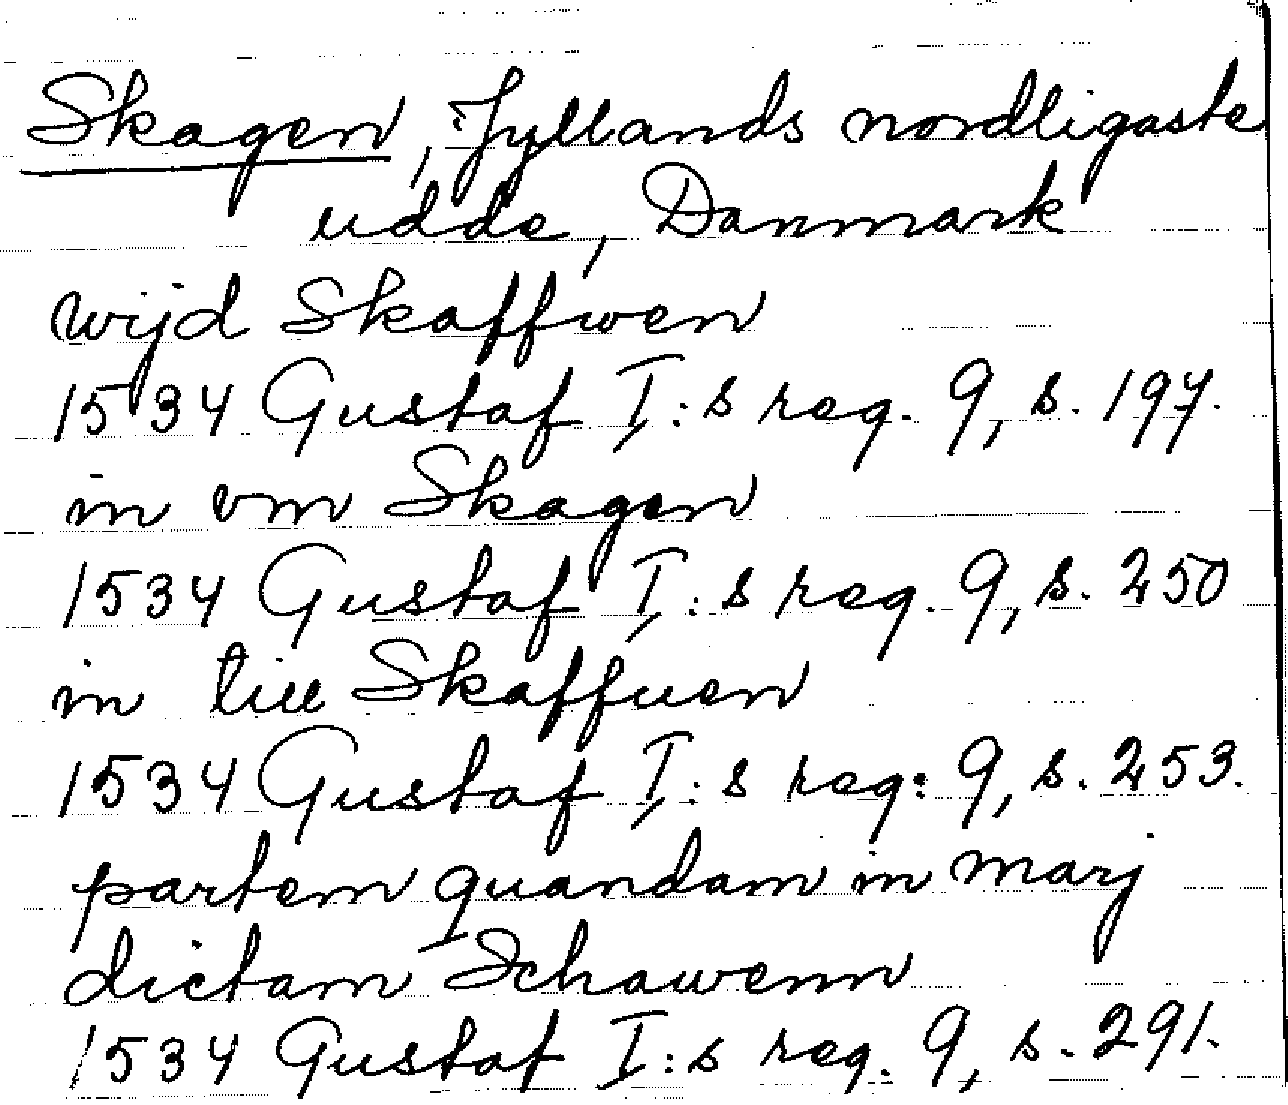 Skagen, Jyllands nordligaste
udde, Danmark
wijd Skaffwen
1534 Gustaf I:s reg. 9, s. 197.
in vm Skagen
1534 Gustaf I:s reg. 9, s. 250
in till Skaffuen
1534 Gustaf I:s reg: 9, s. 253.
partem quandam in marj
dictam Schawenn
1534 Gustaf I:s reg. 9, s. 291.